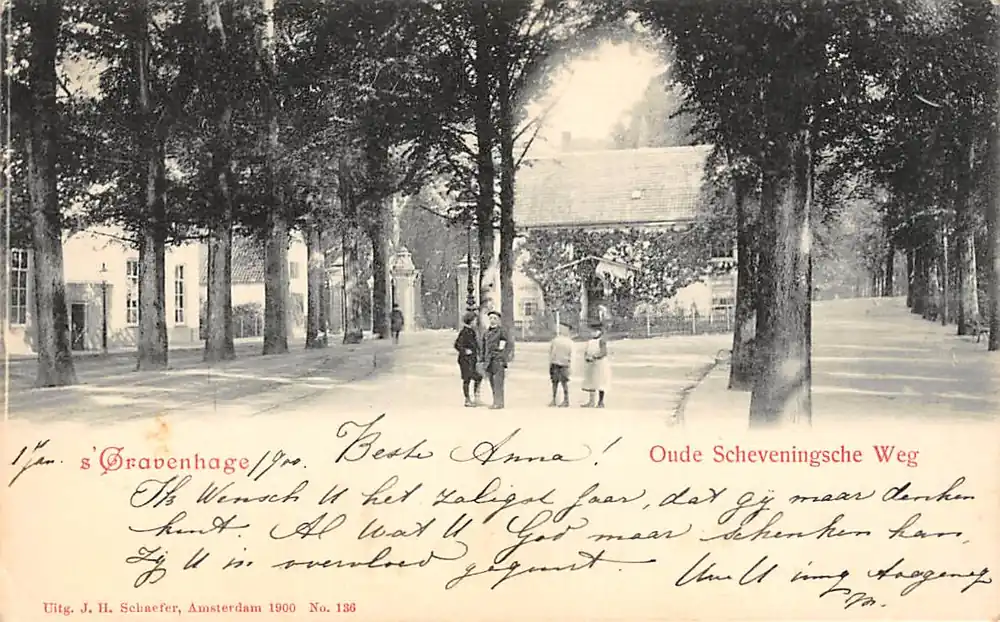 1 Jan. s'Gravenhage 1900. Beste Anna! Oude Scheveningsche Weg
Ik Wensch U het zaligst Jaar, dat gy maar denken
kunt. Al wat U God maar schenken kan,
Zij U in overvloed gegunt. Uw U innig
Uitg. J. H. Schaefer, Amsterdam 1900 No. 136